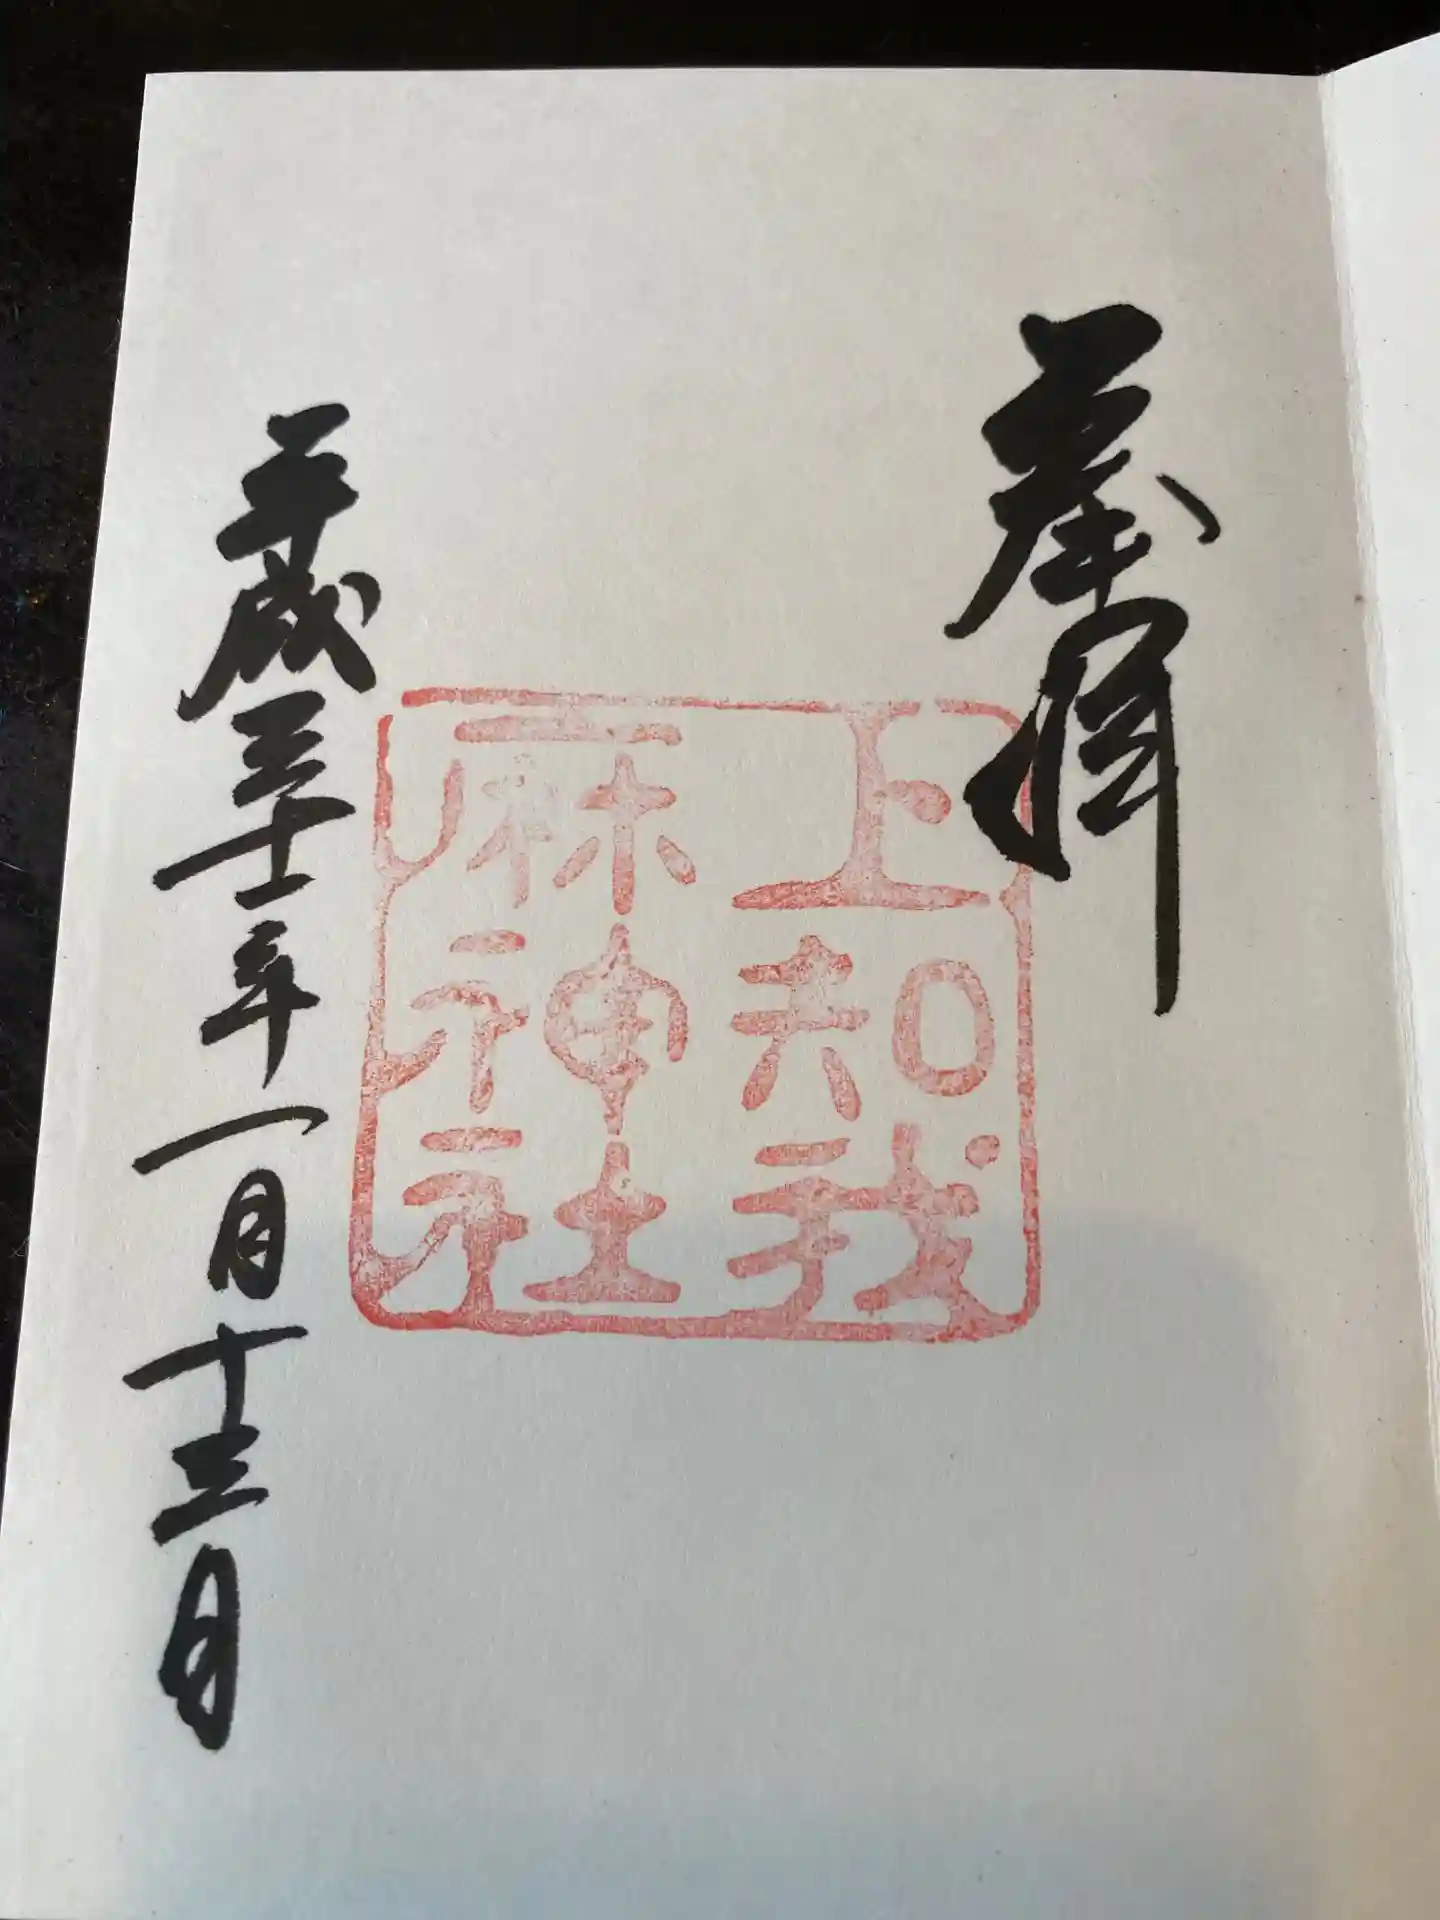 奉拝
上知我
麻神社
平成三十一年一月十三日